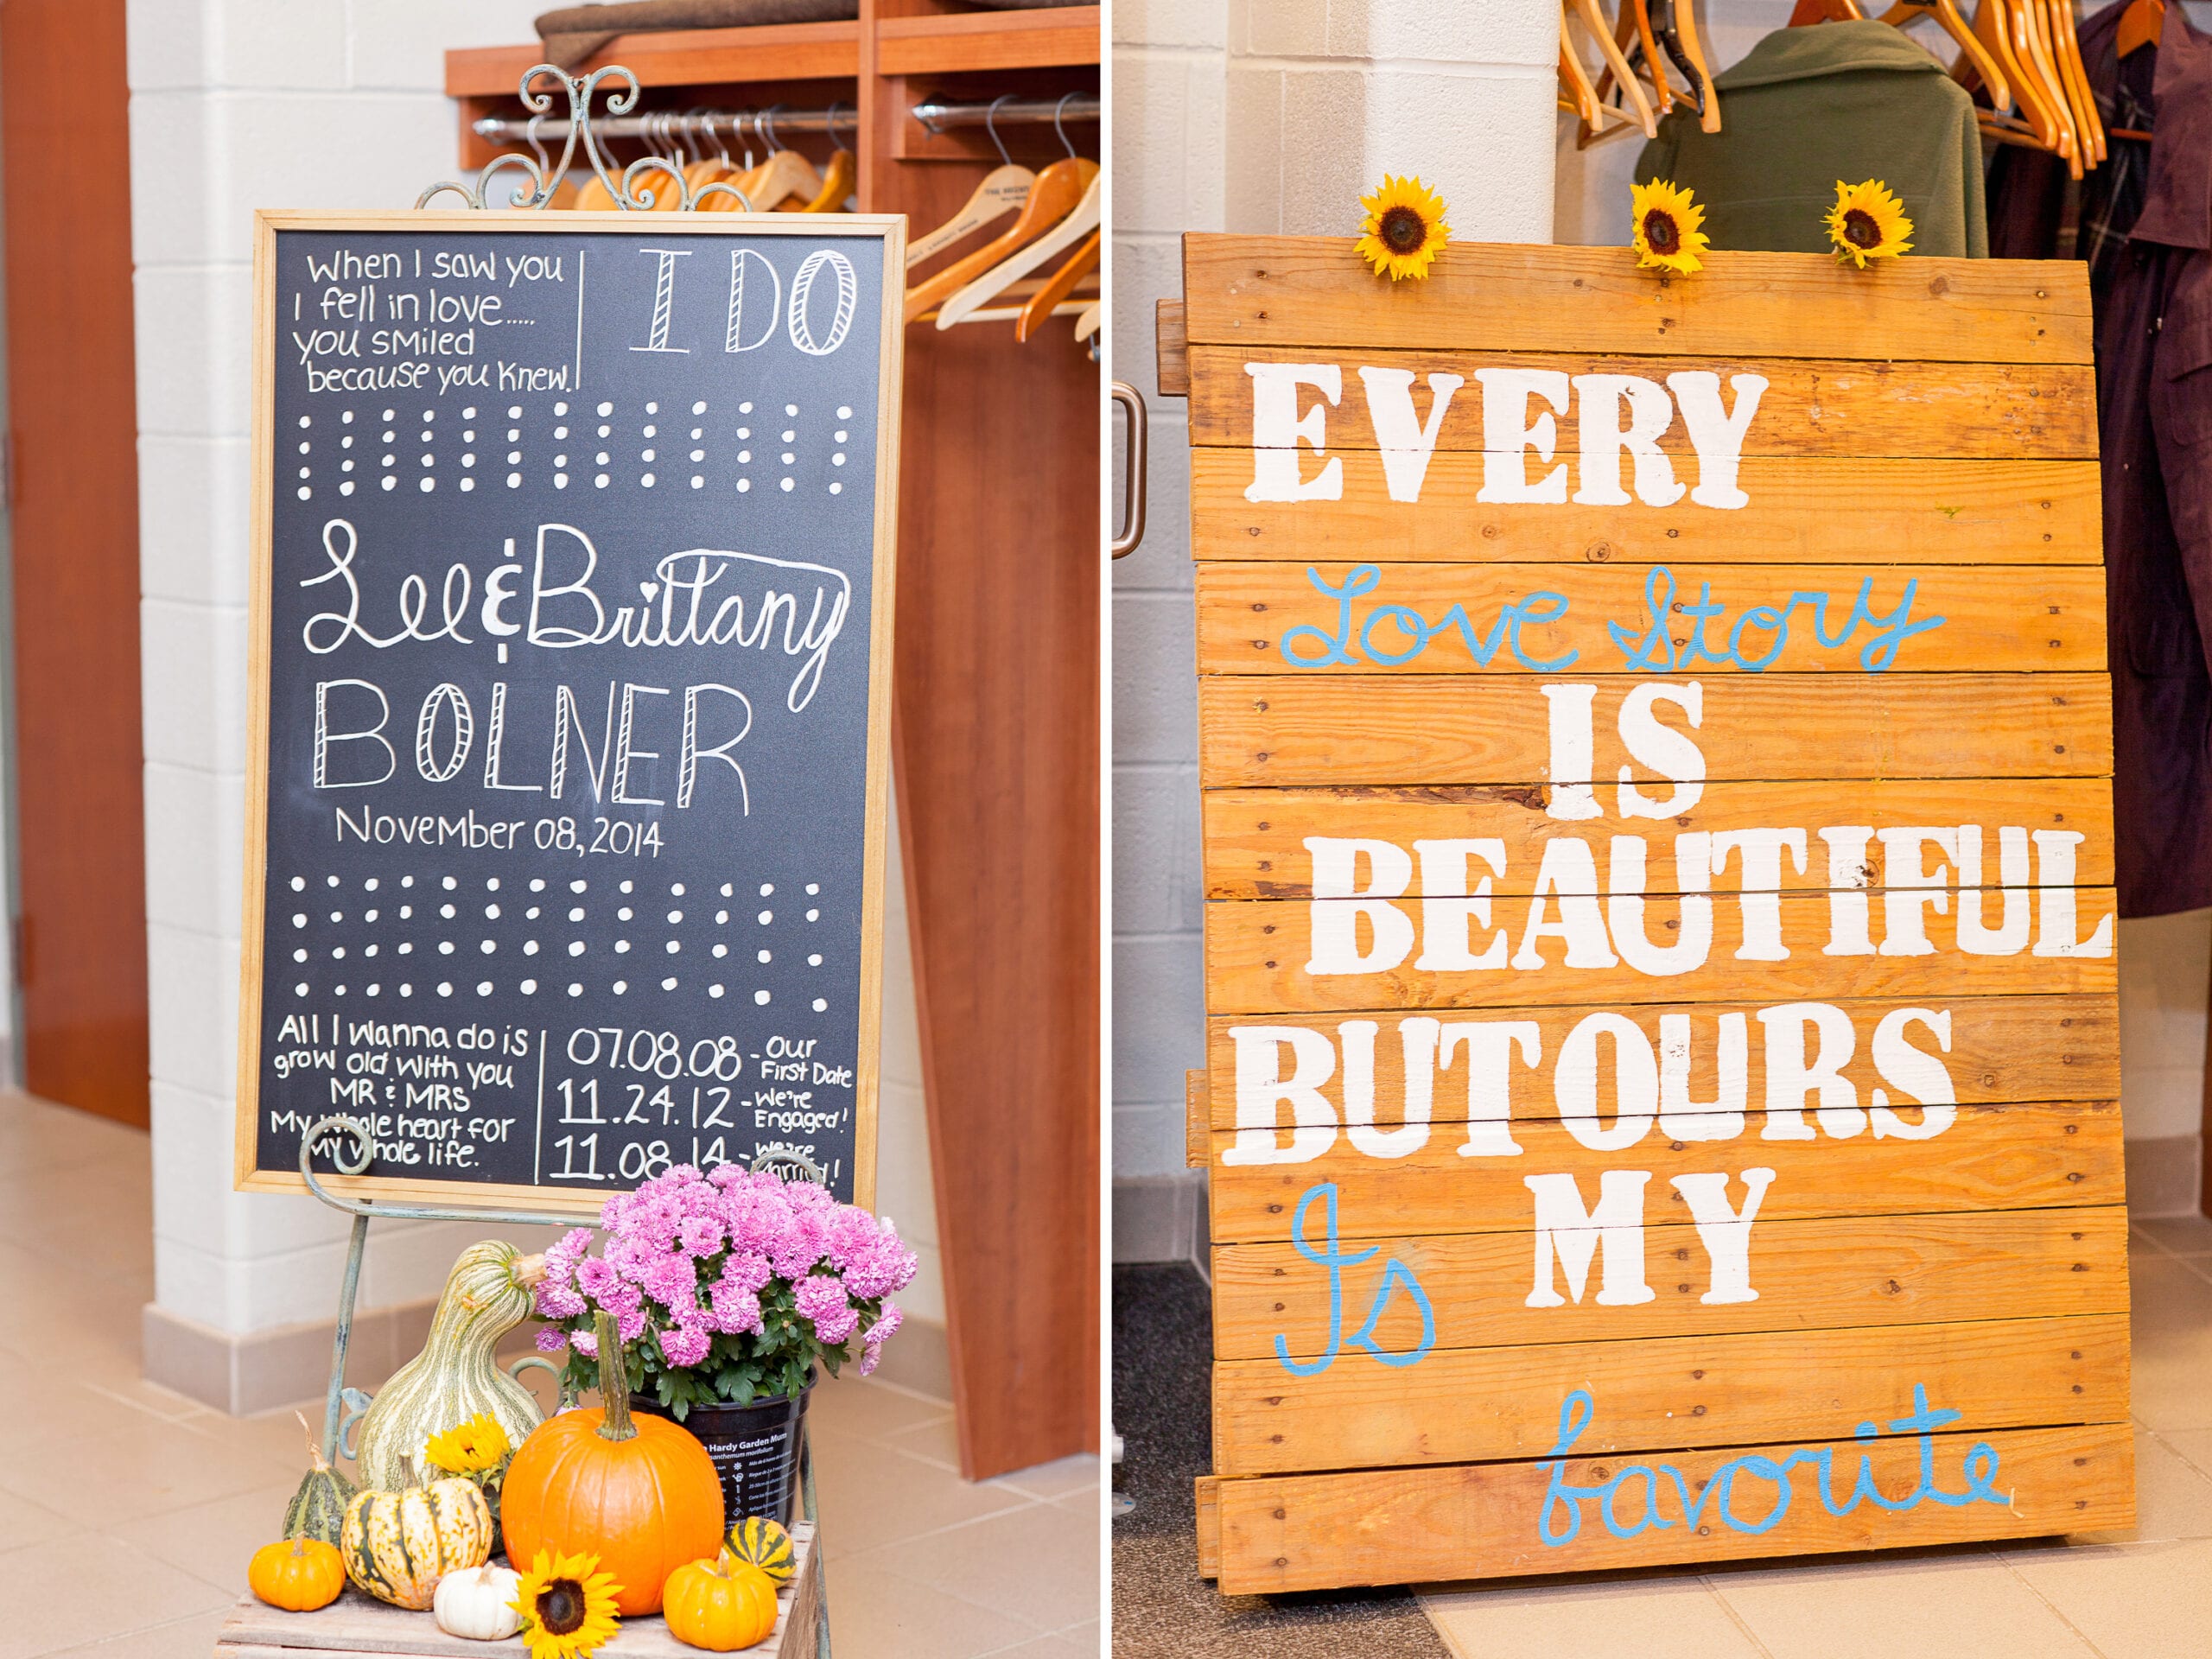 When I saw you
I fell in love.....
you smiled
because you knew.
I DO
Lee & Brittany
BOLNER
November 08, 2014
All I wanna do is
grow old with you
MR & MRS
My whole heart for
My whole life.
07.08.08 - Our First Date
11.24.12 - We're Engaged!
11.08.14 - We're Married!
Hardy Garden Mum
EVERY
Love Story
IS
BEAUTIFUL
BUT OURS
Is MY
favorite